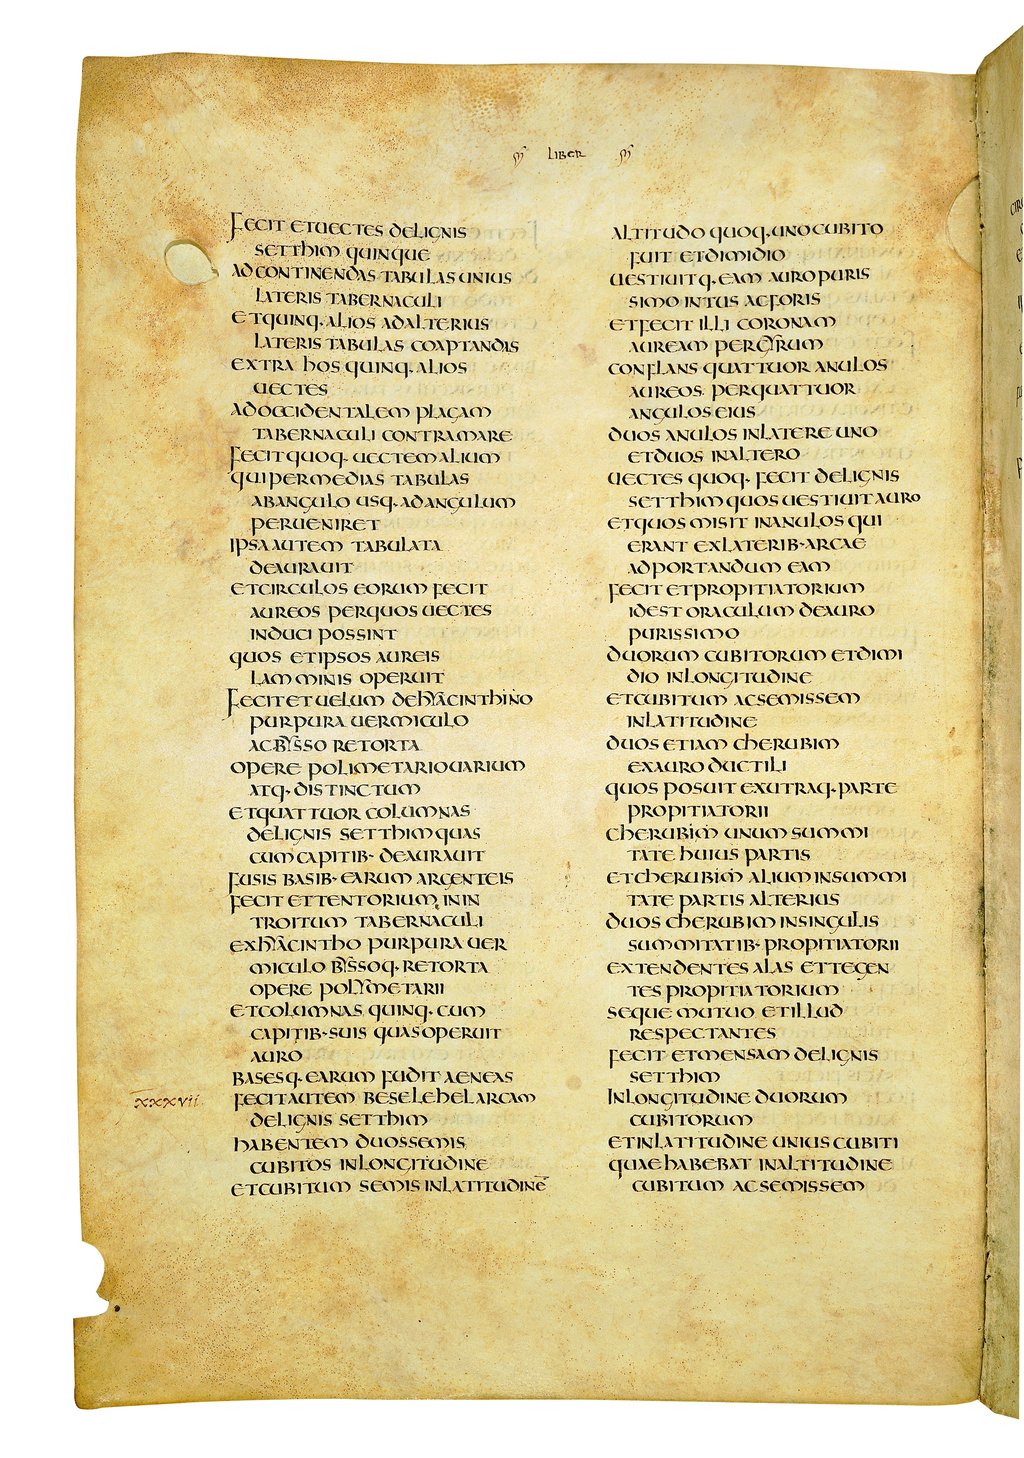 LIBER
FECIT ETUECTES DELIGNIS
SETTHIM QUINQUE
ADCONTINENDAS TABULAS UNIUS
LATERIS TABERNACULI
ETQUINQ· ALIOS ADALTERIUS
LATERIS TABULAS COAPTANDAS
EXTRA HOS QUINQ· ALIOS
UECTES
ADOCCIDENTALEM PLAGAM
TABERNACULI CONTRAMARE
FECITQUOQ· UECTEMALIUM
QUIPERMEDIAS TABULAS
ABANGULO USQ· ADANGULUM
PERUENIRET
IPSAAUTEM TABULATA
DEAURAUIT
ETCIRCULOS EORUM FECIT
AUREOS PERQUOS UECTES
INDUCI POSSINT
QUOS ETIPSOS AUREIS
LAMMINIS OPERUIT
FECITETUELUM DEHYACINTHINO
PURPURA UERMICULO
ACBYSSO RETORTA
OPERE POLIMETARIOUARIUM
ATQ· DISTINCTUM
ETQUATTUOR COLUMNAS
DELIGNIS SETTHIMQUAS
CUMCAPITIB· DEAURAUIT
FUSIS BASIB· EARUM ARGENTEIS
FECIT ETTENTORIUM ININ
TROITUM TABERNACULI
EXHYACINTHO PURPURA UER
MICULO BYSSOQ· RETORTA
OPERE POLYMETARII
ETCOLUMNAS QUINQ· CUM
CAPITIB· SUIS QUASOPERUIT
AURO
BASESQ· EARUM FUDIT AENEAS
XXXVII FECITAUTEM BESELEHELARCAM
DELIGNIS SETTHIM
HABENTEM DUOSSEMIS
CUBITOS INLONGITUDINE
ETCUBITUM SEMIS INLATITUDINE
ALTITUDO QUOQ· UNOCUBITO
FUIT ETDIMIDIO
UESTIUITQ· EAM AUROPURIS
SIMO INTUS ACFORIS
ETFECIT ILLI CORONAM
AUREAM PERGYRUM
CONFLANS QUATTUOR ANULOS
AUREOS PERQUATTUOR
ANGULOS EIUS
DUOS ANULOS INLATERE UNO
ETDUOS INALTERO
UECTES QUOQ· FECIT DELIGNIS
SETTHIMQUOS UESTIUITAURO
ETQUOS MISIT INANULOS QUI
ERANT EXLATERIB· ARCAE
ADPORTANDUM EAM
FECIT ETPROPITIATORIUM
IDEST ORACULUM DEAURO
PURISSIMO
DUORUM CUBITORUM ETDIMI
DIO INLONGITUDINE
ETCUBITUM ACSEMISSEM
INLATITUDINE
DUOS ETIAM CHERUBIM
EXAURO DUCTILI
QUOS POSUIT EXUTRAQ· PARTE
PROPITIATORII
CHERUBIM UNUM SUMMI
TATE HUIUS PARTIS
ETCHERUBIM ALIUM INSUMMI
TATE PARTIS ALTERIUS
DUOS CHERUBIM INSINGULIS
SUMMITATIB· PROPITIATORII
EXTENDENTES ALAS ETTEGEN
TES PROPITIATORIUM
SEQUE MUTUO ETILLUD
RESPECTANTES
FECIT ETMENSAM DELIGNIS
SETTHIM
INLONGITUDINE DUORUM
CUBITORUM
ETINLATITUDINE UNIUS CUBITI
QUAEHABEBAT INALTITUDINE
CUBITUM ACSEMISSEM